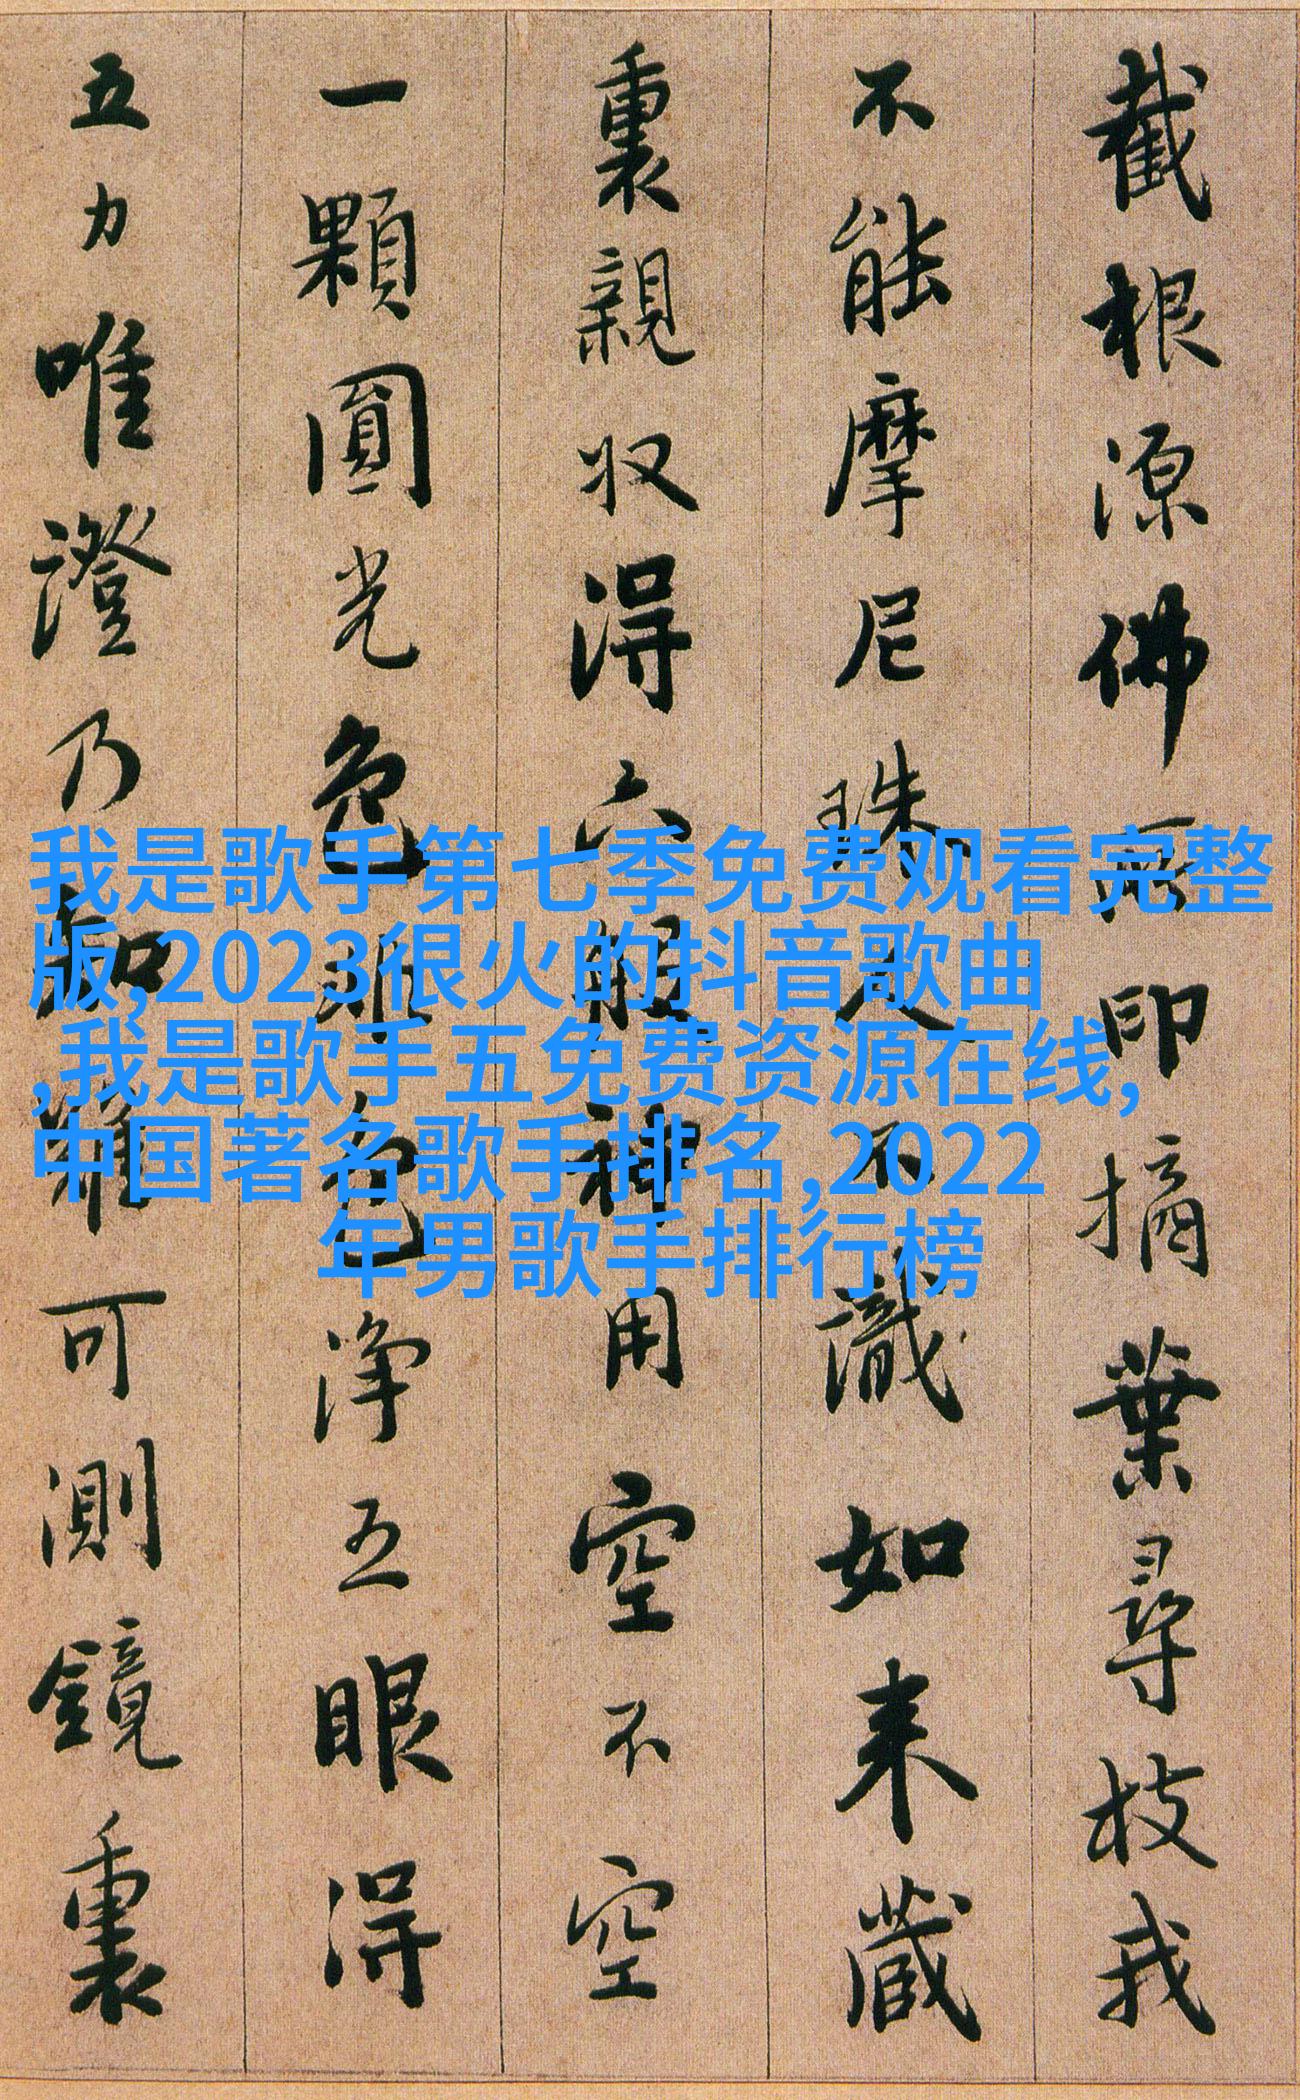 截根源佛所印摘葉尋枝我
不能摩尼珠人不識如来藏
裏親収得六般神用空不空
一顆圓光色非色淨五眼得
五力唯證乃知難可測鏡裏
我是歌手第七季免费观看完整
版,2023很火的抖音歌曲
,我是歌手五免费资源在线,
中国著名歌手排名,2022
年男歌手排行榜